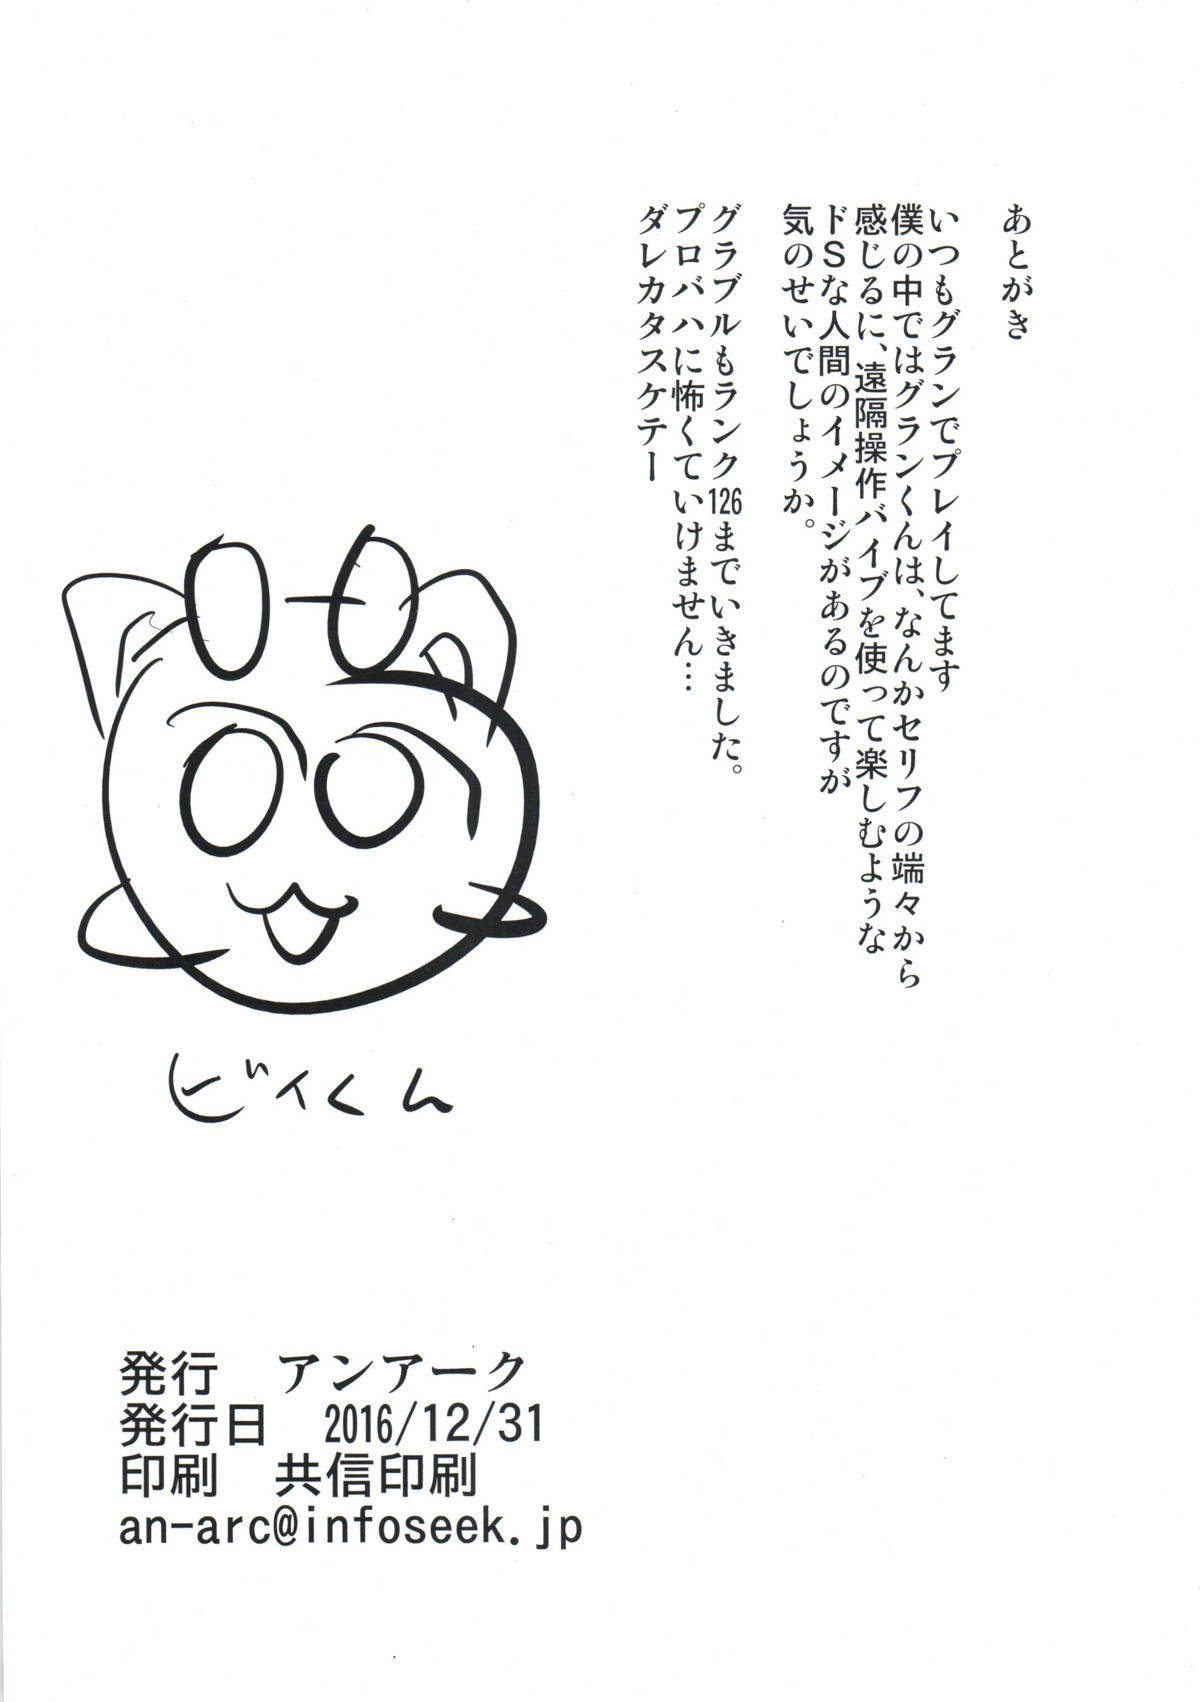 あとがき
いつもグランでプレイしてます
僕の中ではグランくんは、なんかセリフの端々から
感じるに、遠隔操作バイブを使って楽しむような
ドSな人間のイメージがあるのですが
気のせいでしょうか。
グラブルもランク126まででいきました。
プロバハに怖くていけません…
ダレカタスケテー
ビィくん
発行　アンアーク
発行日　2016/12/31
印刷　共信印刷
an-arc@infoseek.jp